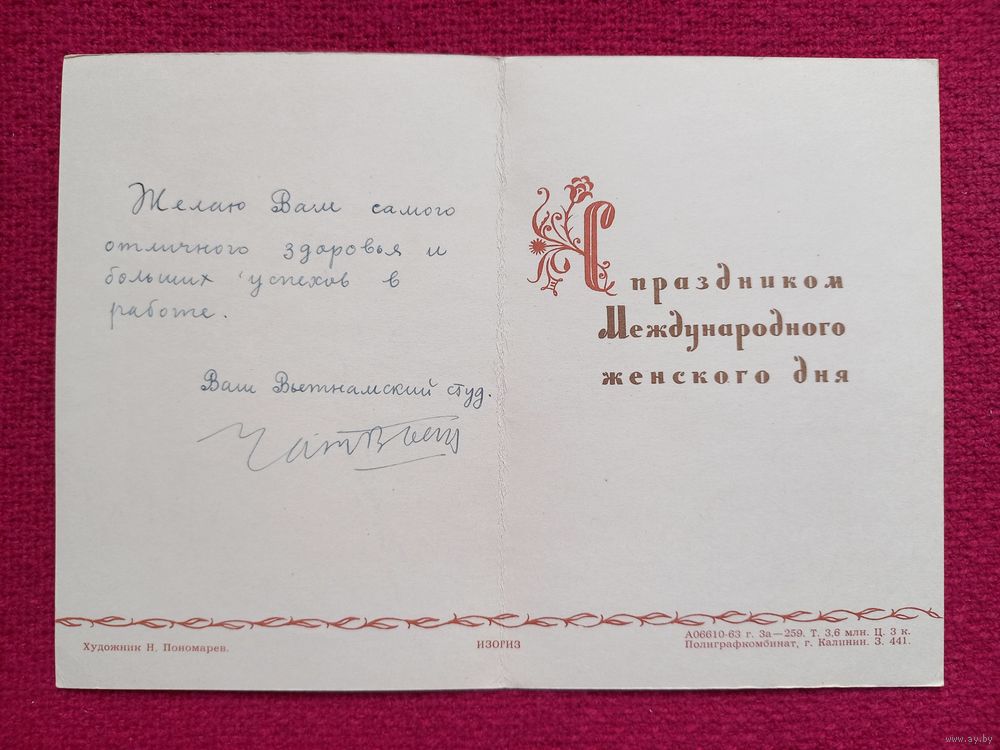 Желаю Вам самого
отличного здоровья и
больших успехов в
работе.
Ваш Вьетнамский студ.
С праздником
Международного
женского дня
Художник Н. Пономарев.
ИЗОГИЗ
А06610-63 г. За—259. Т. 3,6 млн. Ц. 3 к.
Полиграфкомбинат, г. Калинин. З. 441.
www.ay.by